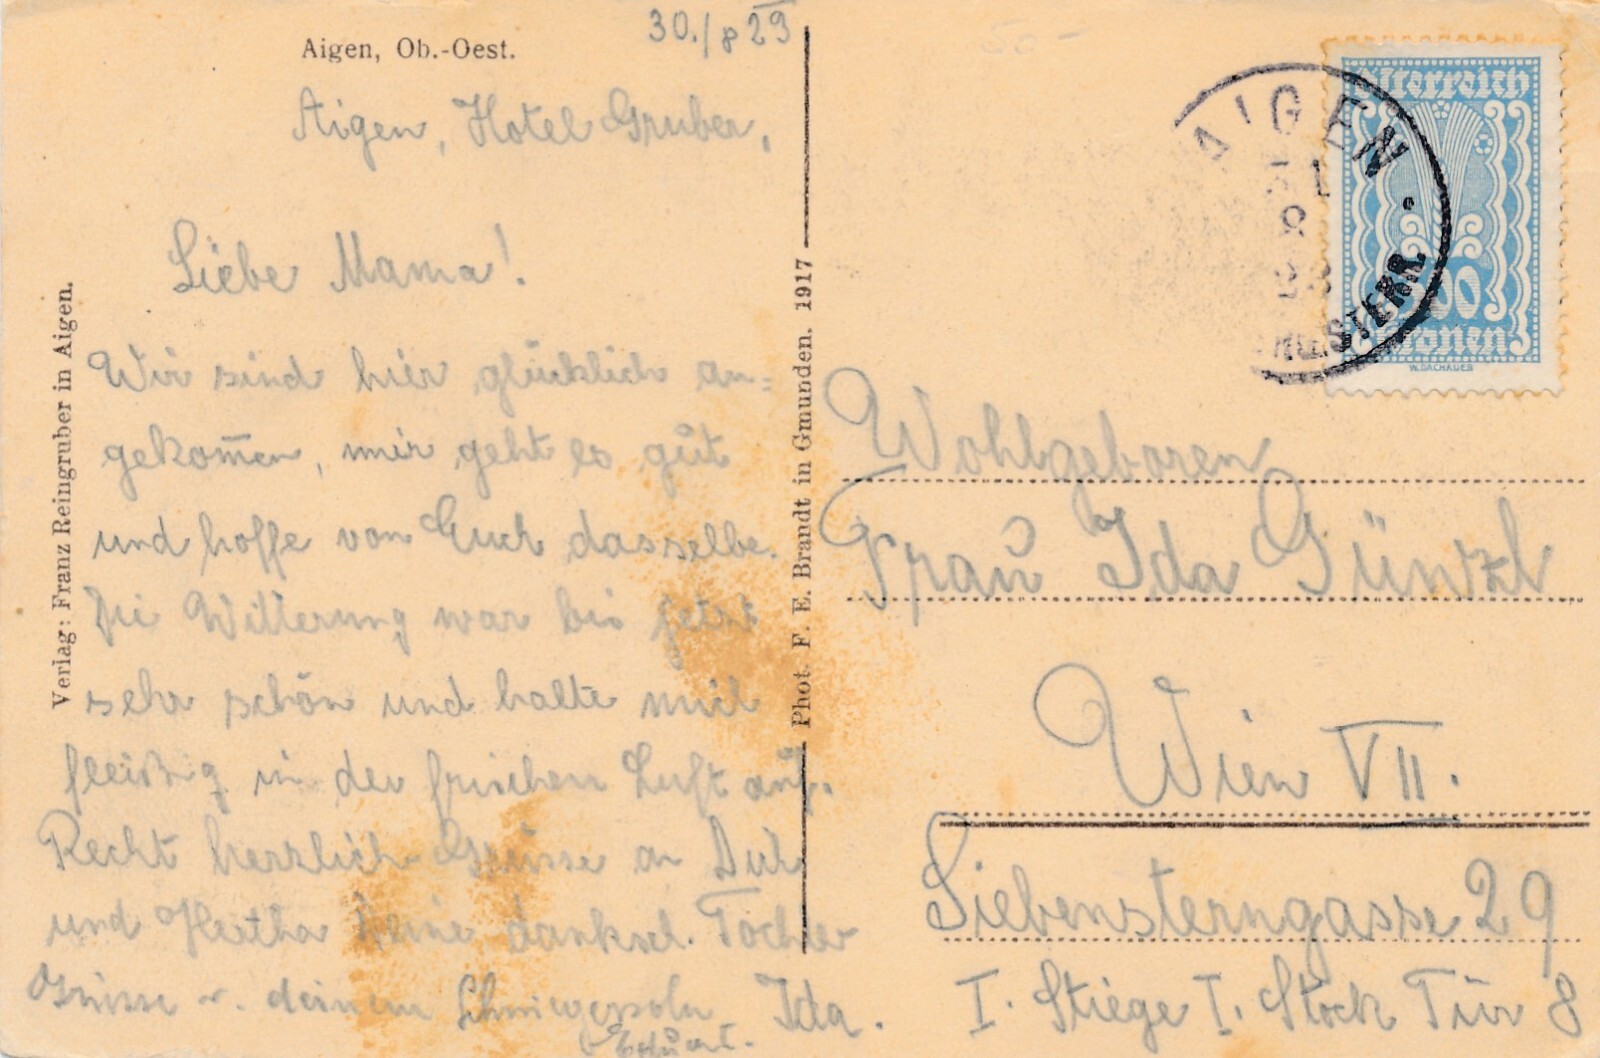 30./8 23
Aigen, Ob.-Oest.
Aigen, Hotel Gruber,
Liebe Mama!
Wir sind hier glücklich an=
gekom̅en, mir geht es gut
und hoffe von Euch dasselbe.
Die Witterung war bis jetzt
sehr schön und halte mich
fleißig in der frischen Luft auf.
Recht herzlich Grüsse an Dich
und Hertha Deine danksch. Tochter
Ida.
Grüsse v. deinem Schwiegersohn
Eduard.
Verlag: Franz Reingruber in Aigen.
Phot. F. E. Brandt in Gmunden. 1917
AIGEN
Österreich
Kronen
W. DACHAUER
Wohlgeboren
Frau Ida Günzl
Wien VII.
Siebensterngasse 29
I. Stiege I. Stock Tür 8